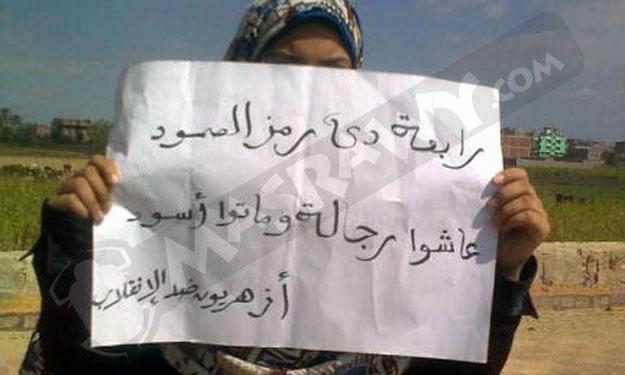 رابعة دي رمز الصمود
عاشوا رجالة وماتوا أسود
أزهريون ضد الإنقلاب
MASRAWY.com